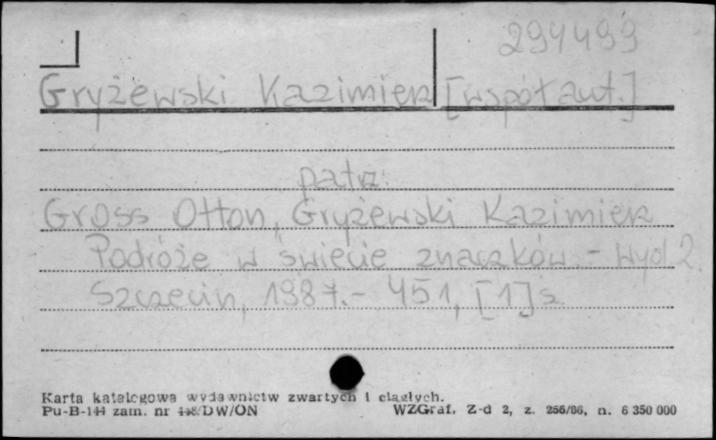 294499
Gryżewski Kazimierz [współaut.]
patrz:
Gross Otton, Gryżewski Kazimierz
Podróże w świecie znaczków. - Wyd. 2.
Szczecin, 1987. - 451, [1] s.
Karta katalogowa wydawnictw zwartych i ciągłych.
Pu-B-144 zam. nr 448/DW/ON
WZGraf. Z-d 2, z. 266/86, n. 6 350 000